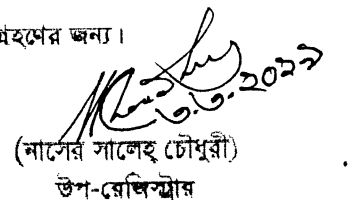 গ্রহণের জন্য।
৩.৩.২০২২
(নাসের সালেহ্ চৌধুরী)
উপ-রেজিস্ট্রার